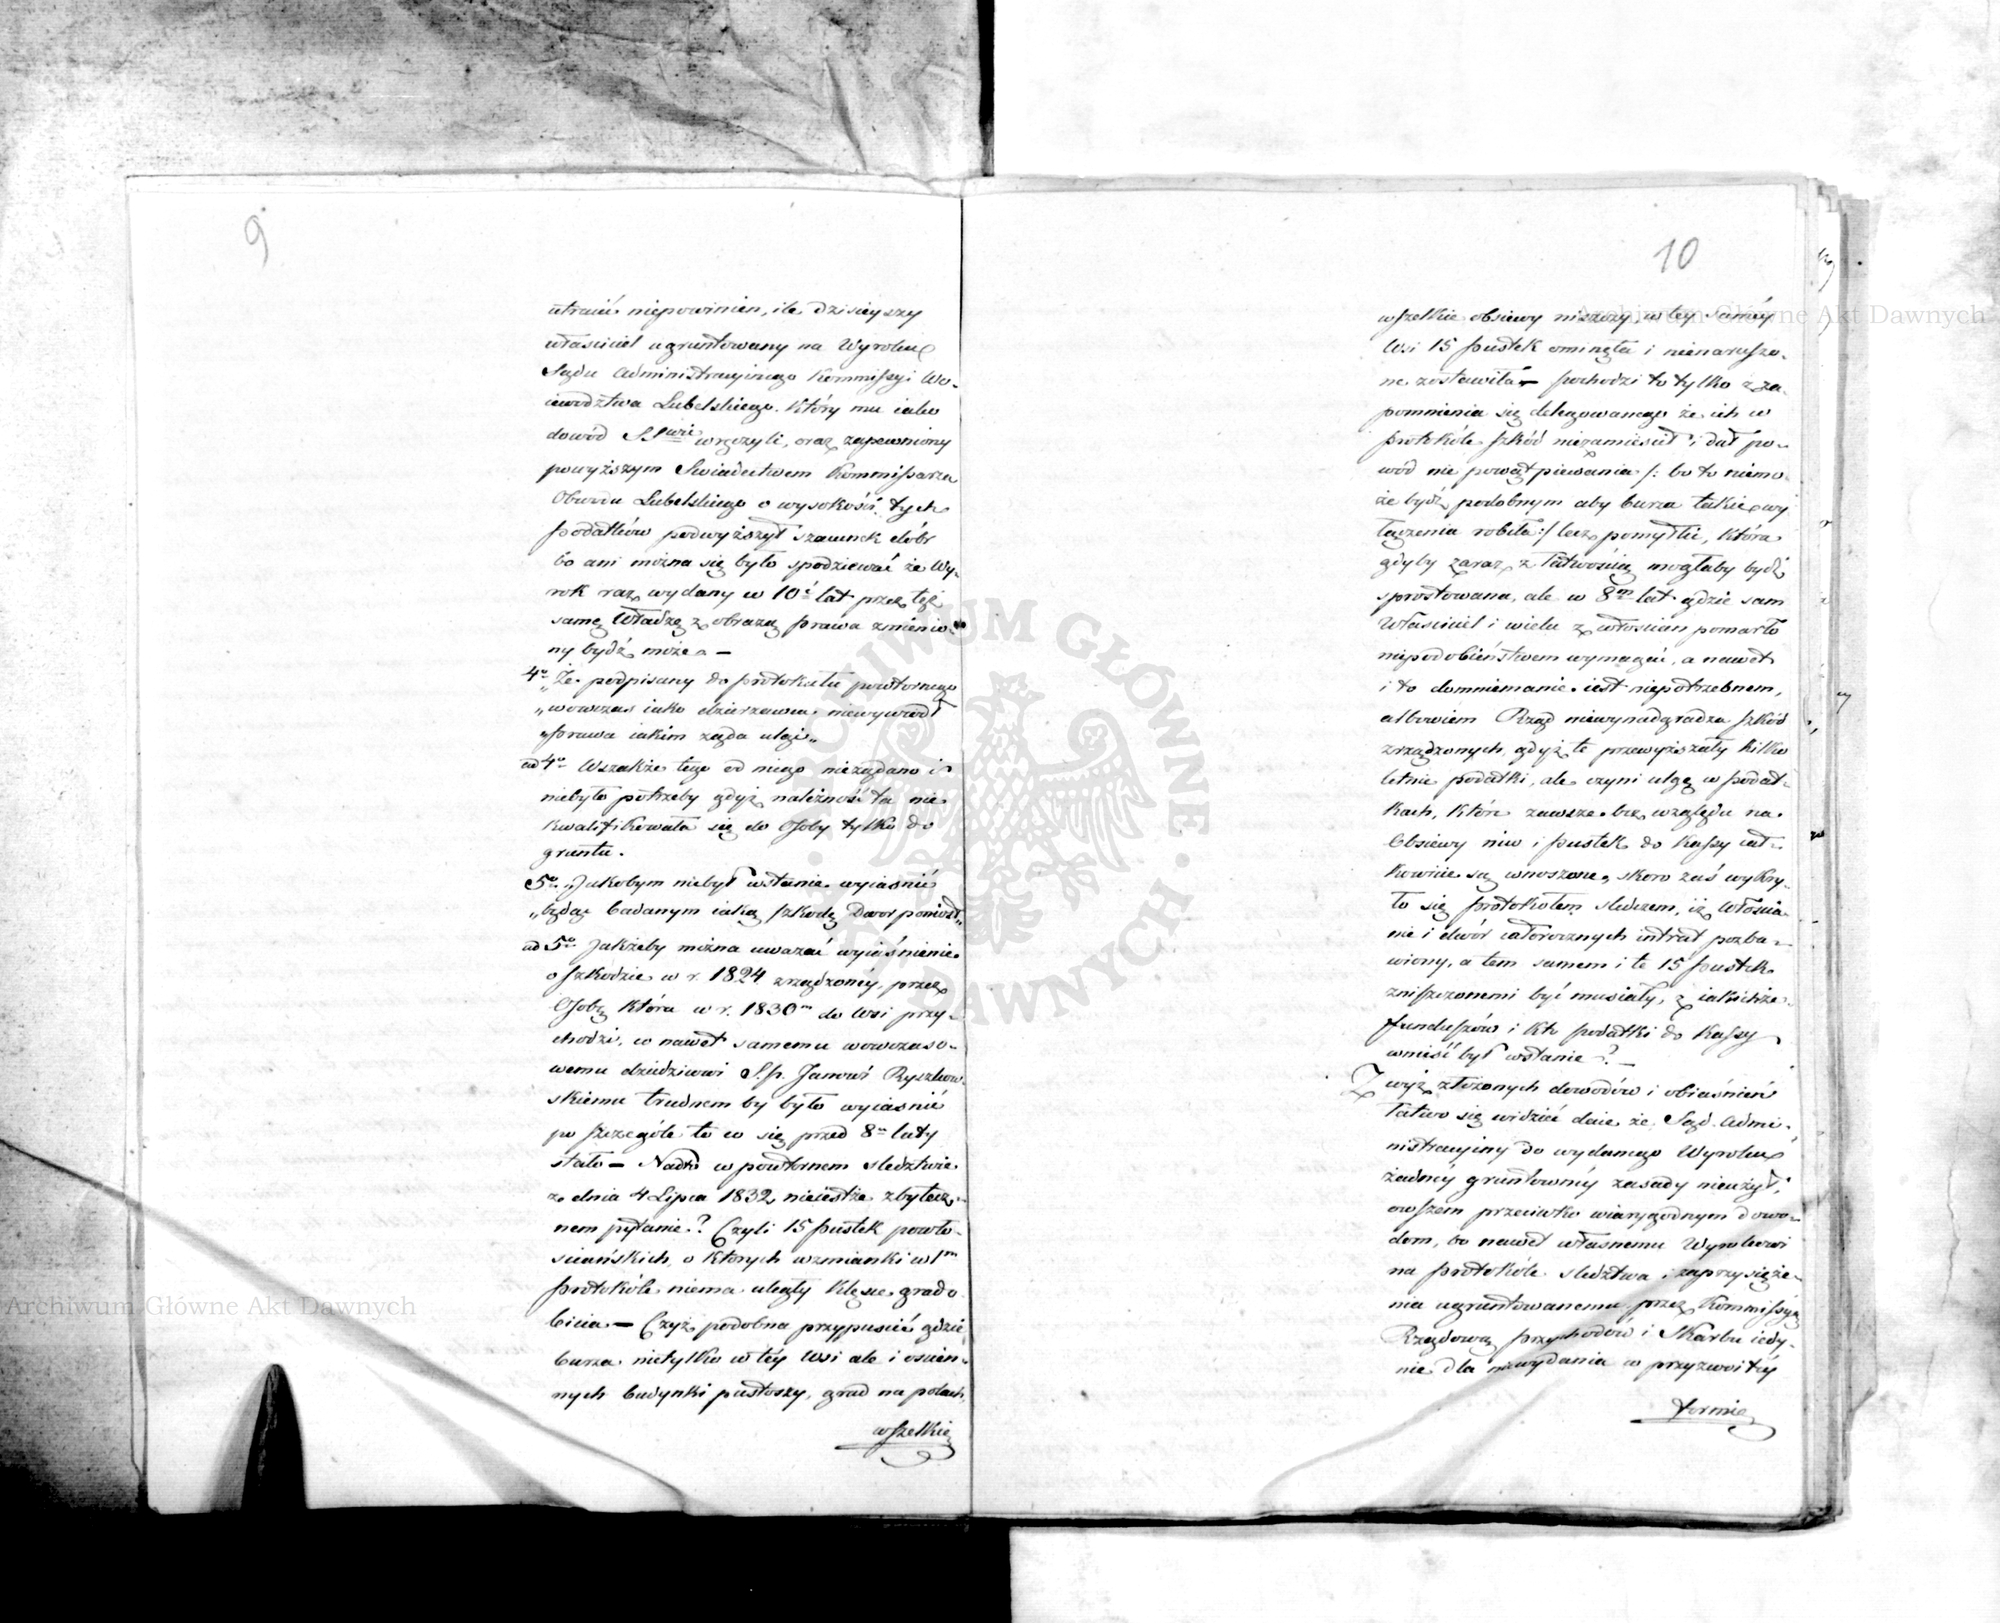 9
utracić niepowinien, ile dzisieyszy
właściciel ugruntowany na Wyroku
Sądu Administracyinego Kommissyi Wo-
iewodztwa Lubelskiego. Który mu iako
dowód SSwie wręczyli, oraz zapewniony
powyższym Swiadectwem Kommissarza
Obwodu Lubelskiego o wysokości tych
podatków podwyższył szacunek dóbr
bo ani można się było spodziewać że Wy-
rok raz wydany w 10ć lat przez tęż
samę Władzę z obrazą prawa zmienio-
ny bydź może. —
4o „Że podpisany do protokułu powtornego
„wowczas iako dzierzawca niewywiódł
„prawa iakim ząda ulgi„
ad 4o Wszakże tego od niego nieżądano i
niebyło potrzeby gdyż należność ta nie
kwalifikowała się do Osoby tylko do
gruntu.
5o „Jakobym niebył wstanie wyiasnić
„będąc badanym iaką szkodę Dwor poniosł„
ad 5o Jakżeby można uważać wyiaśnienie
o szkodzie w r. 1824 zrządzonéy, przez
Osobę która w r. 1830m do Wsi przy-
chodzi, co nawet samemu wowczaso-
wemu dziedzicowi S.p. Janowi Ryszkow-
skiemu trudnem by było wyiasnić
po szczególe to co się przed 8u laty
stało — Nadto w powtornem sledztwie
z dnia 4 Lipca 1832 nieiestże zbytecz-
nem pytanie? Czyli 15 pustek powło-
sciańskich, o których wzmianki w 1m
protokóle niema uległy klęsce grado-
bicia — Czyż podobna przypuscić gdzie
burza nietylko w téy Wsi ale i ościen-
nych budynki pustoszy, grad na polach
wszelkie
10
wszelkie obsiewy niszczy, w téy saméy
Wsi 15 pustek ominęła i nienaruszo-
ne zostawiła — pochodzi to tylko z za-
pomnienia się delegowanego że ich w
protokóle szkód niezamiescił i dał po-
wód nie powątpiewania /: bo to niemo-
że bydź podobnym aby burza takie wy
łączenia robiła :/ lecz pomyłki, która
gdyby zaraz z łatwością mogłaby bydź
sprostowana, ale w 8m lat gdzie sam
Właściciel i wielu z włoscian pomarło
niepodobieństwem wymagać, a nawet
i to domniemanie iest niepotrzebnem,
albowiem Rząd niewynadgradza szkód
zrządzonych, gdyż te przewyższały kilko
letnie podatki, ale czyni ulgę w podat-
kach, które zawsze bez względu na
Obsiewy niw i pustek do Kassy cał-
kowicie są wnoszone, skoro zaś wykry-
ło się protokołem sledczem, iż Włościa-
nie i dwór całorocznych intrat pozba-
wiony, a tem samem i te 15 pustek
zniszczonemi być musiały, z iakichże
funduszów i kto podatki do Kassy
wnieść był wstanie? —
Z wyż złożonych dowodów i obiaśnień
łatwo się widzieć daie że Sąd Admi-
nistracyiny do wydanego Wyroku
żadnéy gruntownéy zasady nieużył,
owszem przeciwko wiarygodnym dowo-
dom, bo nawet własnemu Wyrokowi
na protokóle sledztwa i zaprzysięże-
nia ugruntowanemu, przez Kommissyą
Rządową Przychodów i Skarbu iedy-
nie dla niewydania w przyzwoitéy
formie
Archiwum Główne Akt Dawnych
Archiwum Główne Akt Dawnych
ARCHIWUM GŁÓWNE AKT DAWNYCH